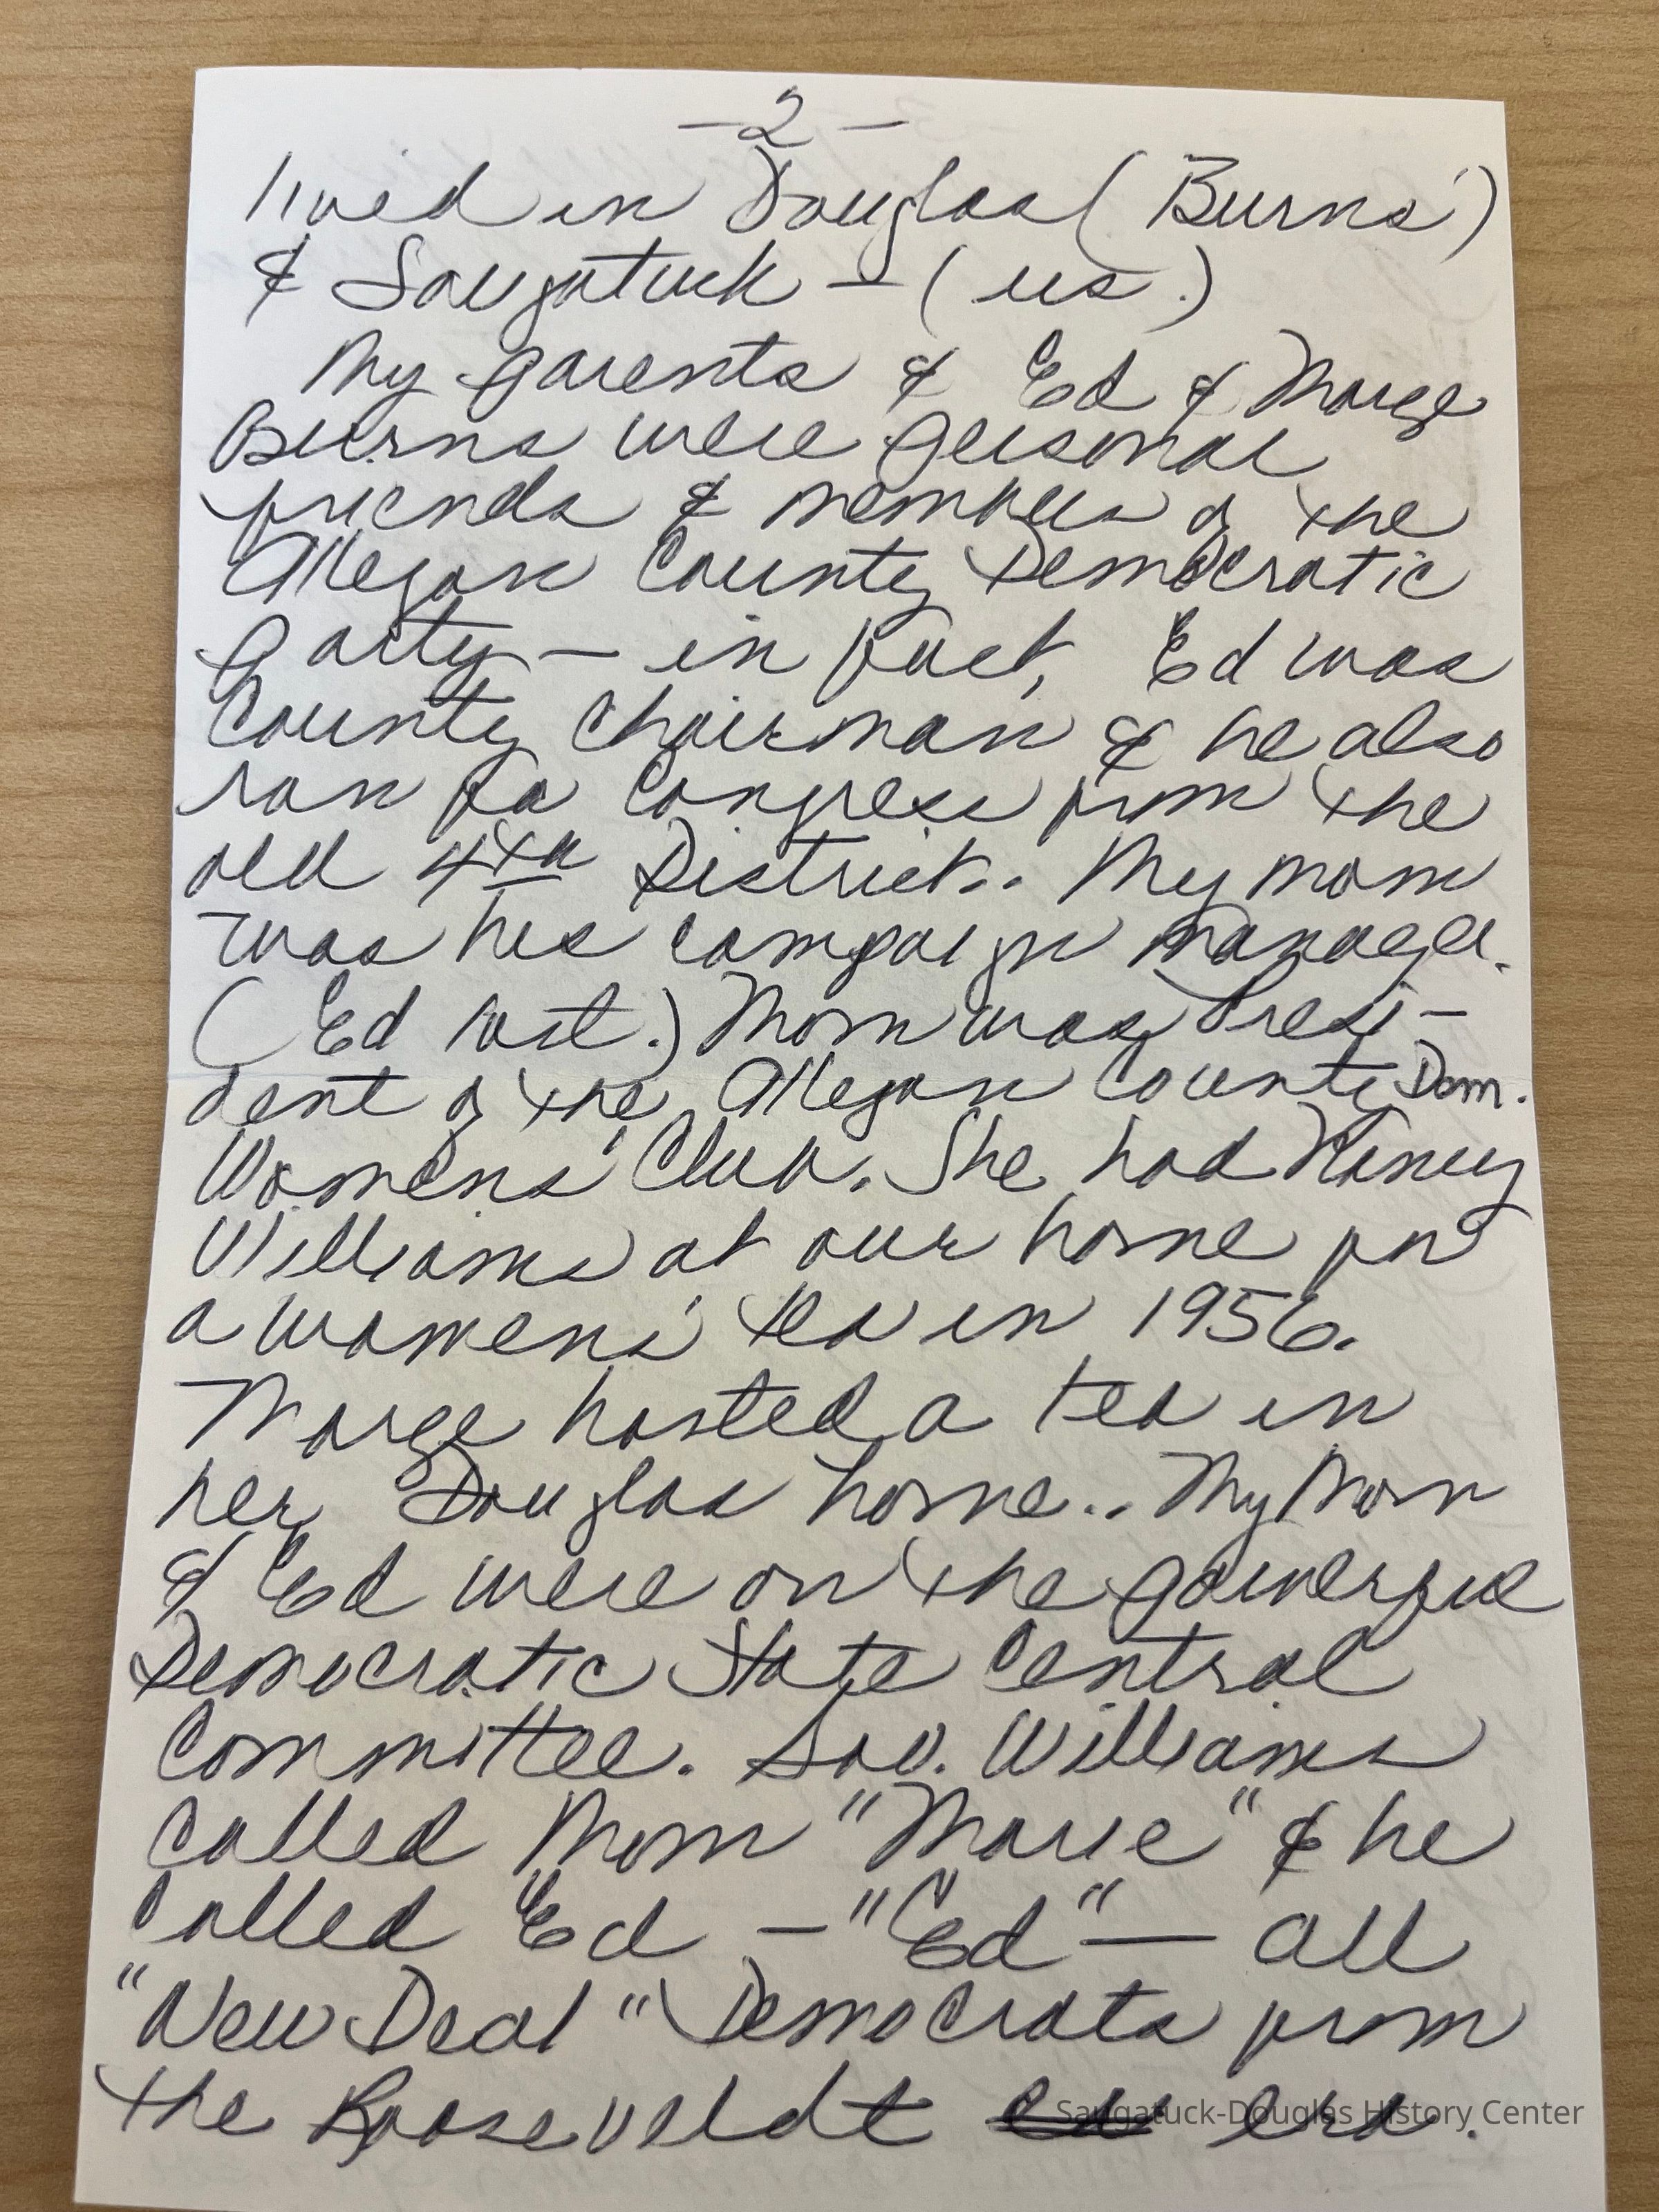 -2-
lived in Douglas (Burns')
& Saugatuck - (us.)
My parents & Ed & Marge
Burns were personal
friends & members of the
Allegan County Democratic
party - in fact, Ed was
County Chairman & he also
ran for Congress from the
old 4th District.. My mom
was his campaign manager.
(Ed lost.) Mom was Presi-
dent of the Allegan County Dem.
Womens' Club. She had Nancy
Williams at our home for
a womens' tea in 1956.
Marge hosted a tea in
her Douglas home.. My Mom
& Ed were on the powerful
Democratic State Central
Committee. Gov. Williams
called Mom "Marie" & he
called Ed - "Ed" - all
"New Deal" Democrats from
the Rooseveldt era.
Saugatuck-Douglas History Center